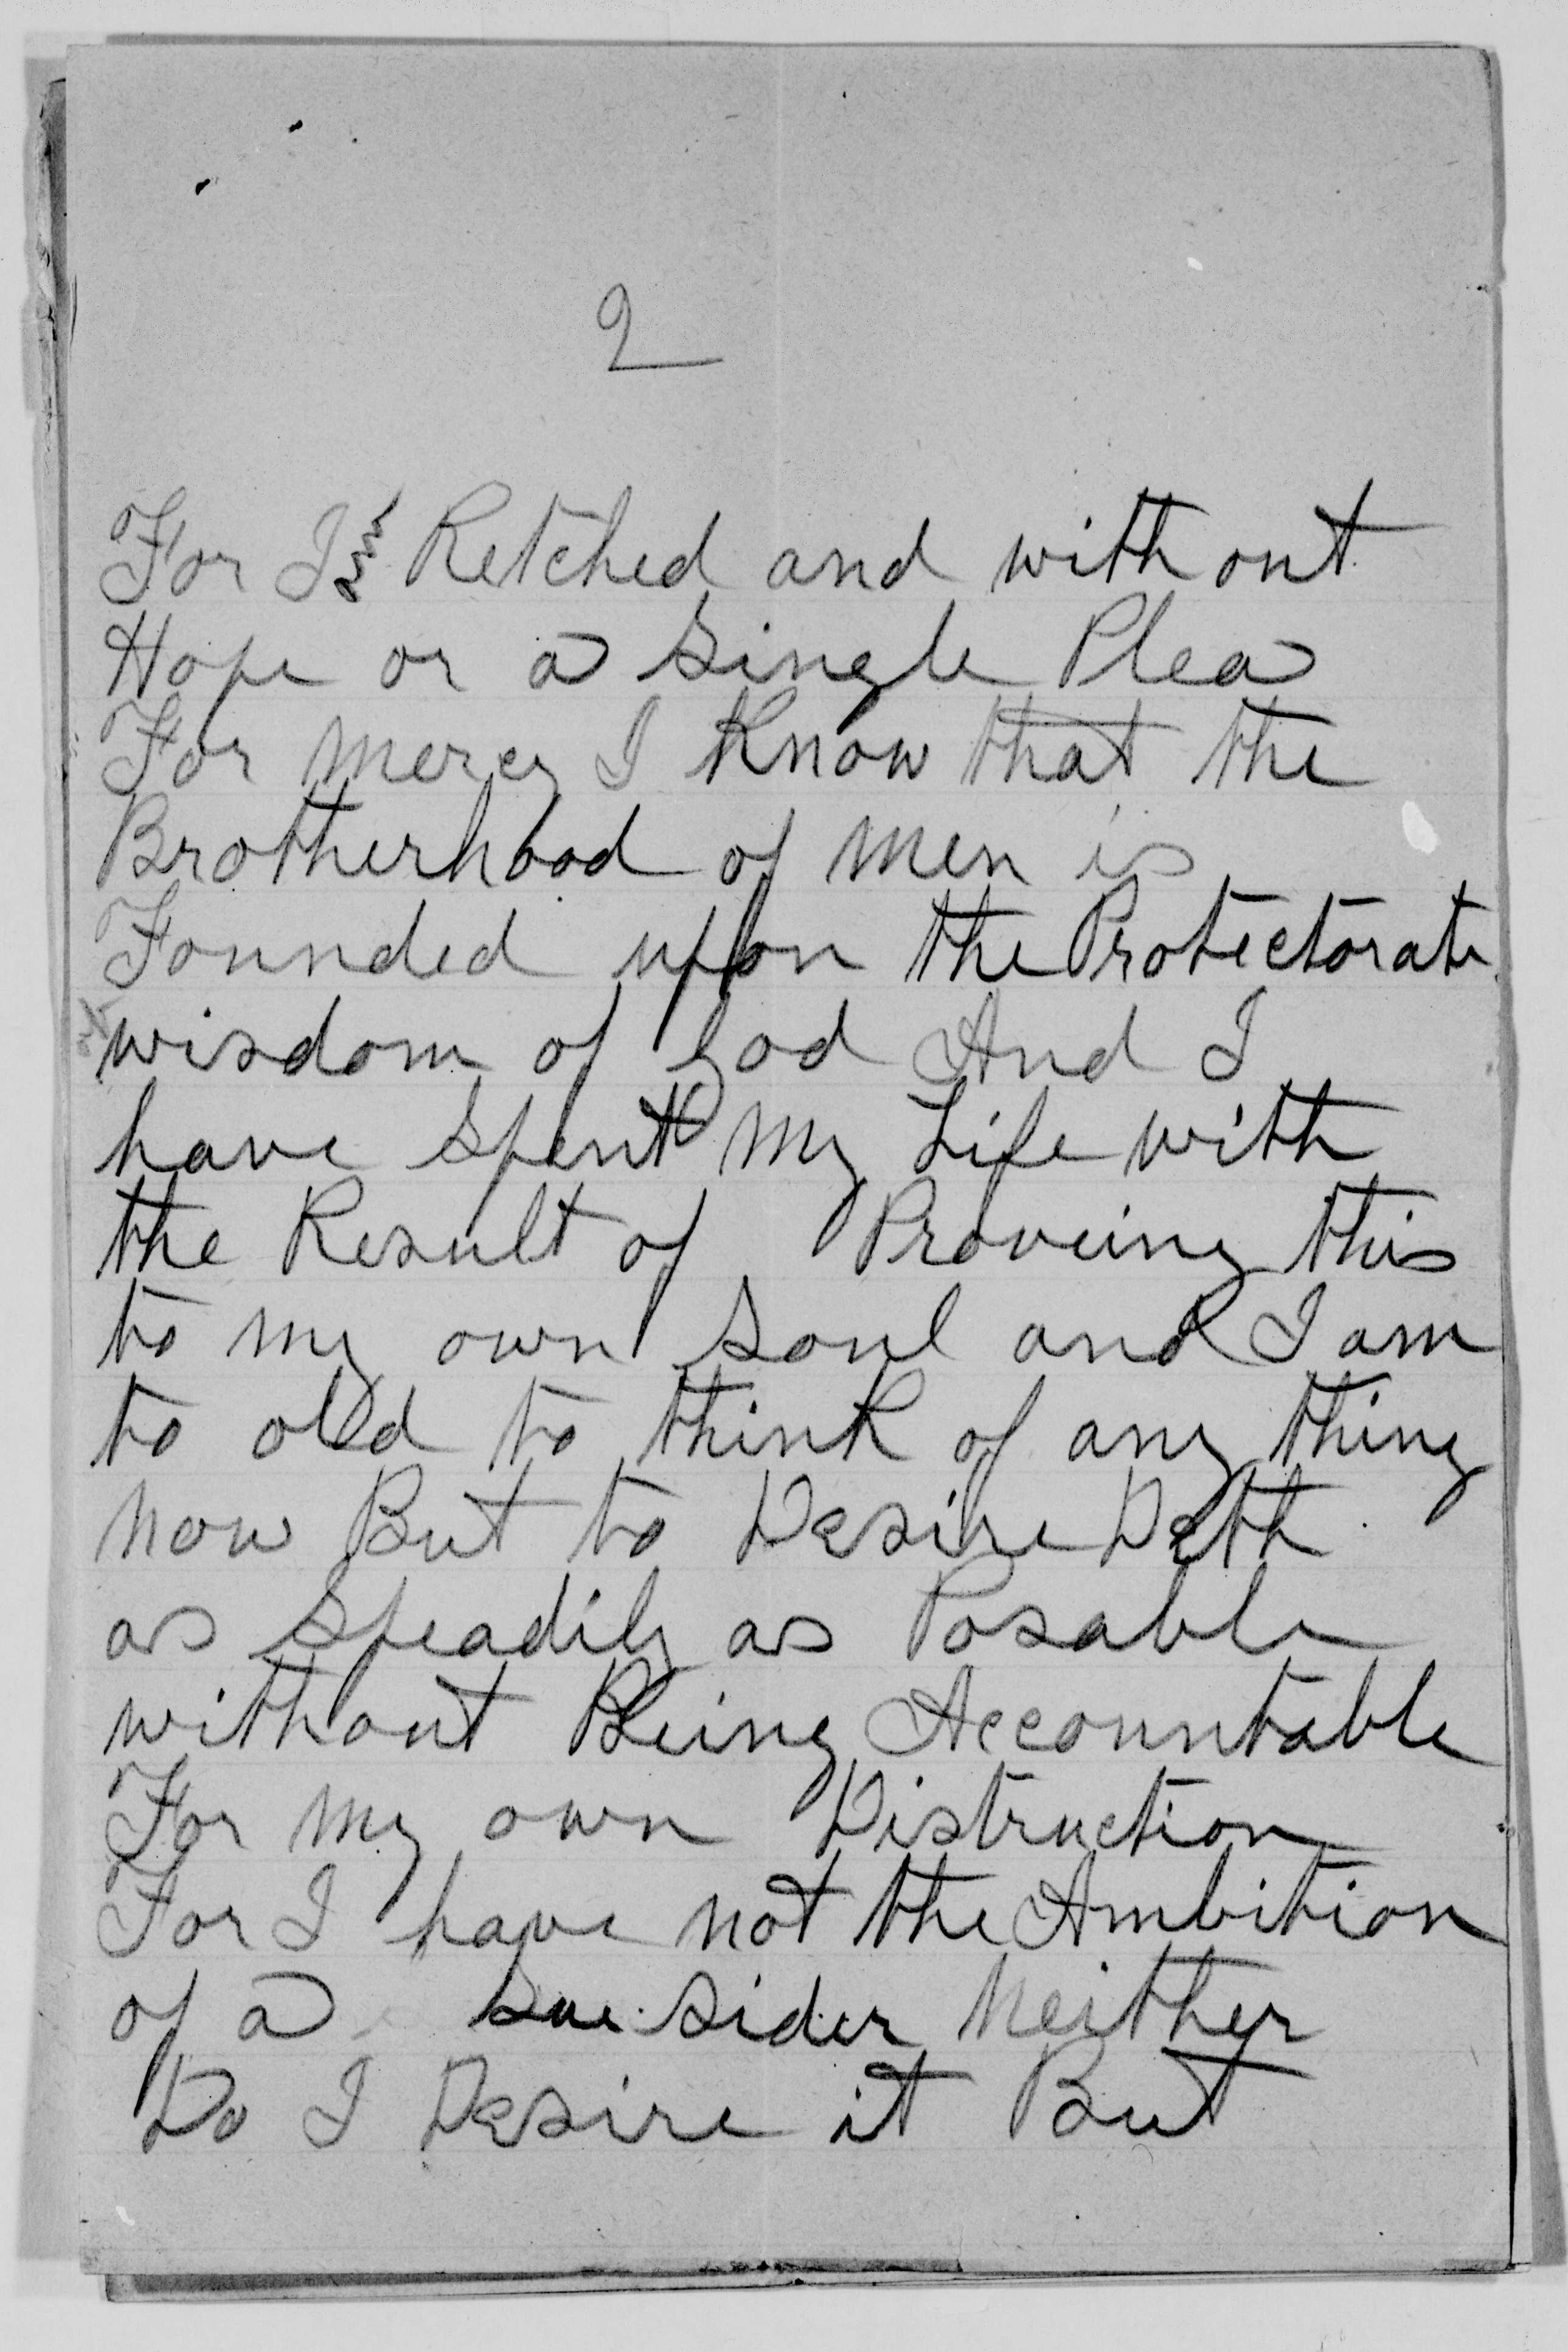 2
For I Retched and without
Hope or a single Plea
For mercy I Know that the
Brotherhood of men is
Founded upon the Protectorate
wisdom of God And I
have spent my Life with
the Result of Proveing this
to my own soul and I am
to old to think of any thing
now But to Desire Deth
as speadily as Posable
without Being Accountable
For my own Distruction
For I have not the Ambition
of a sue sider Neither
Do I Desire it But